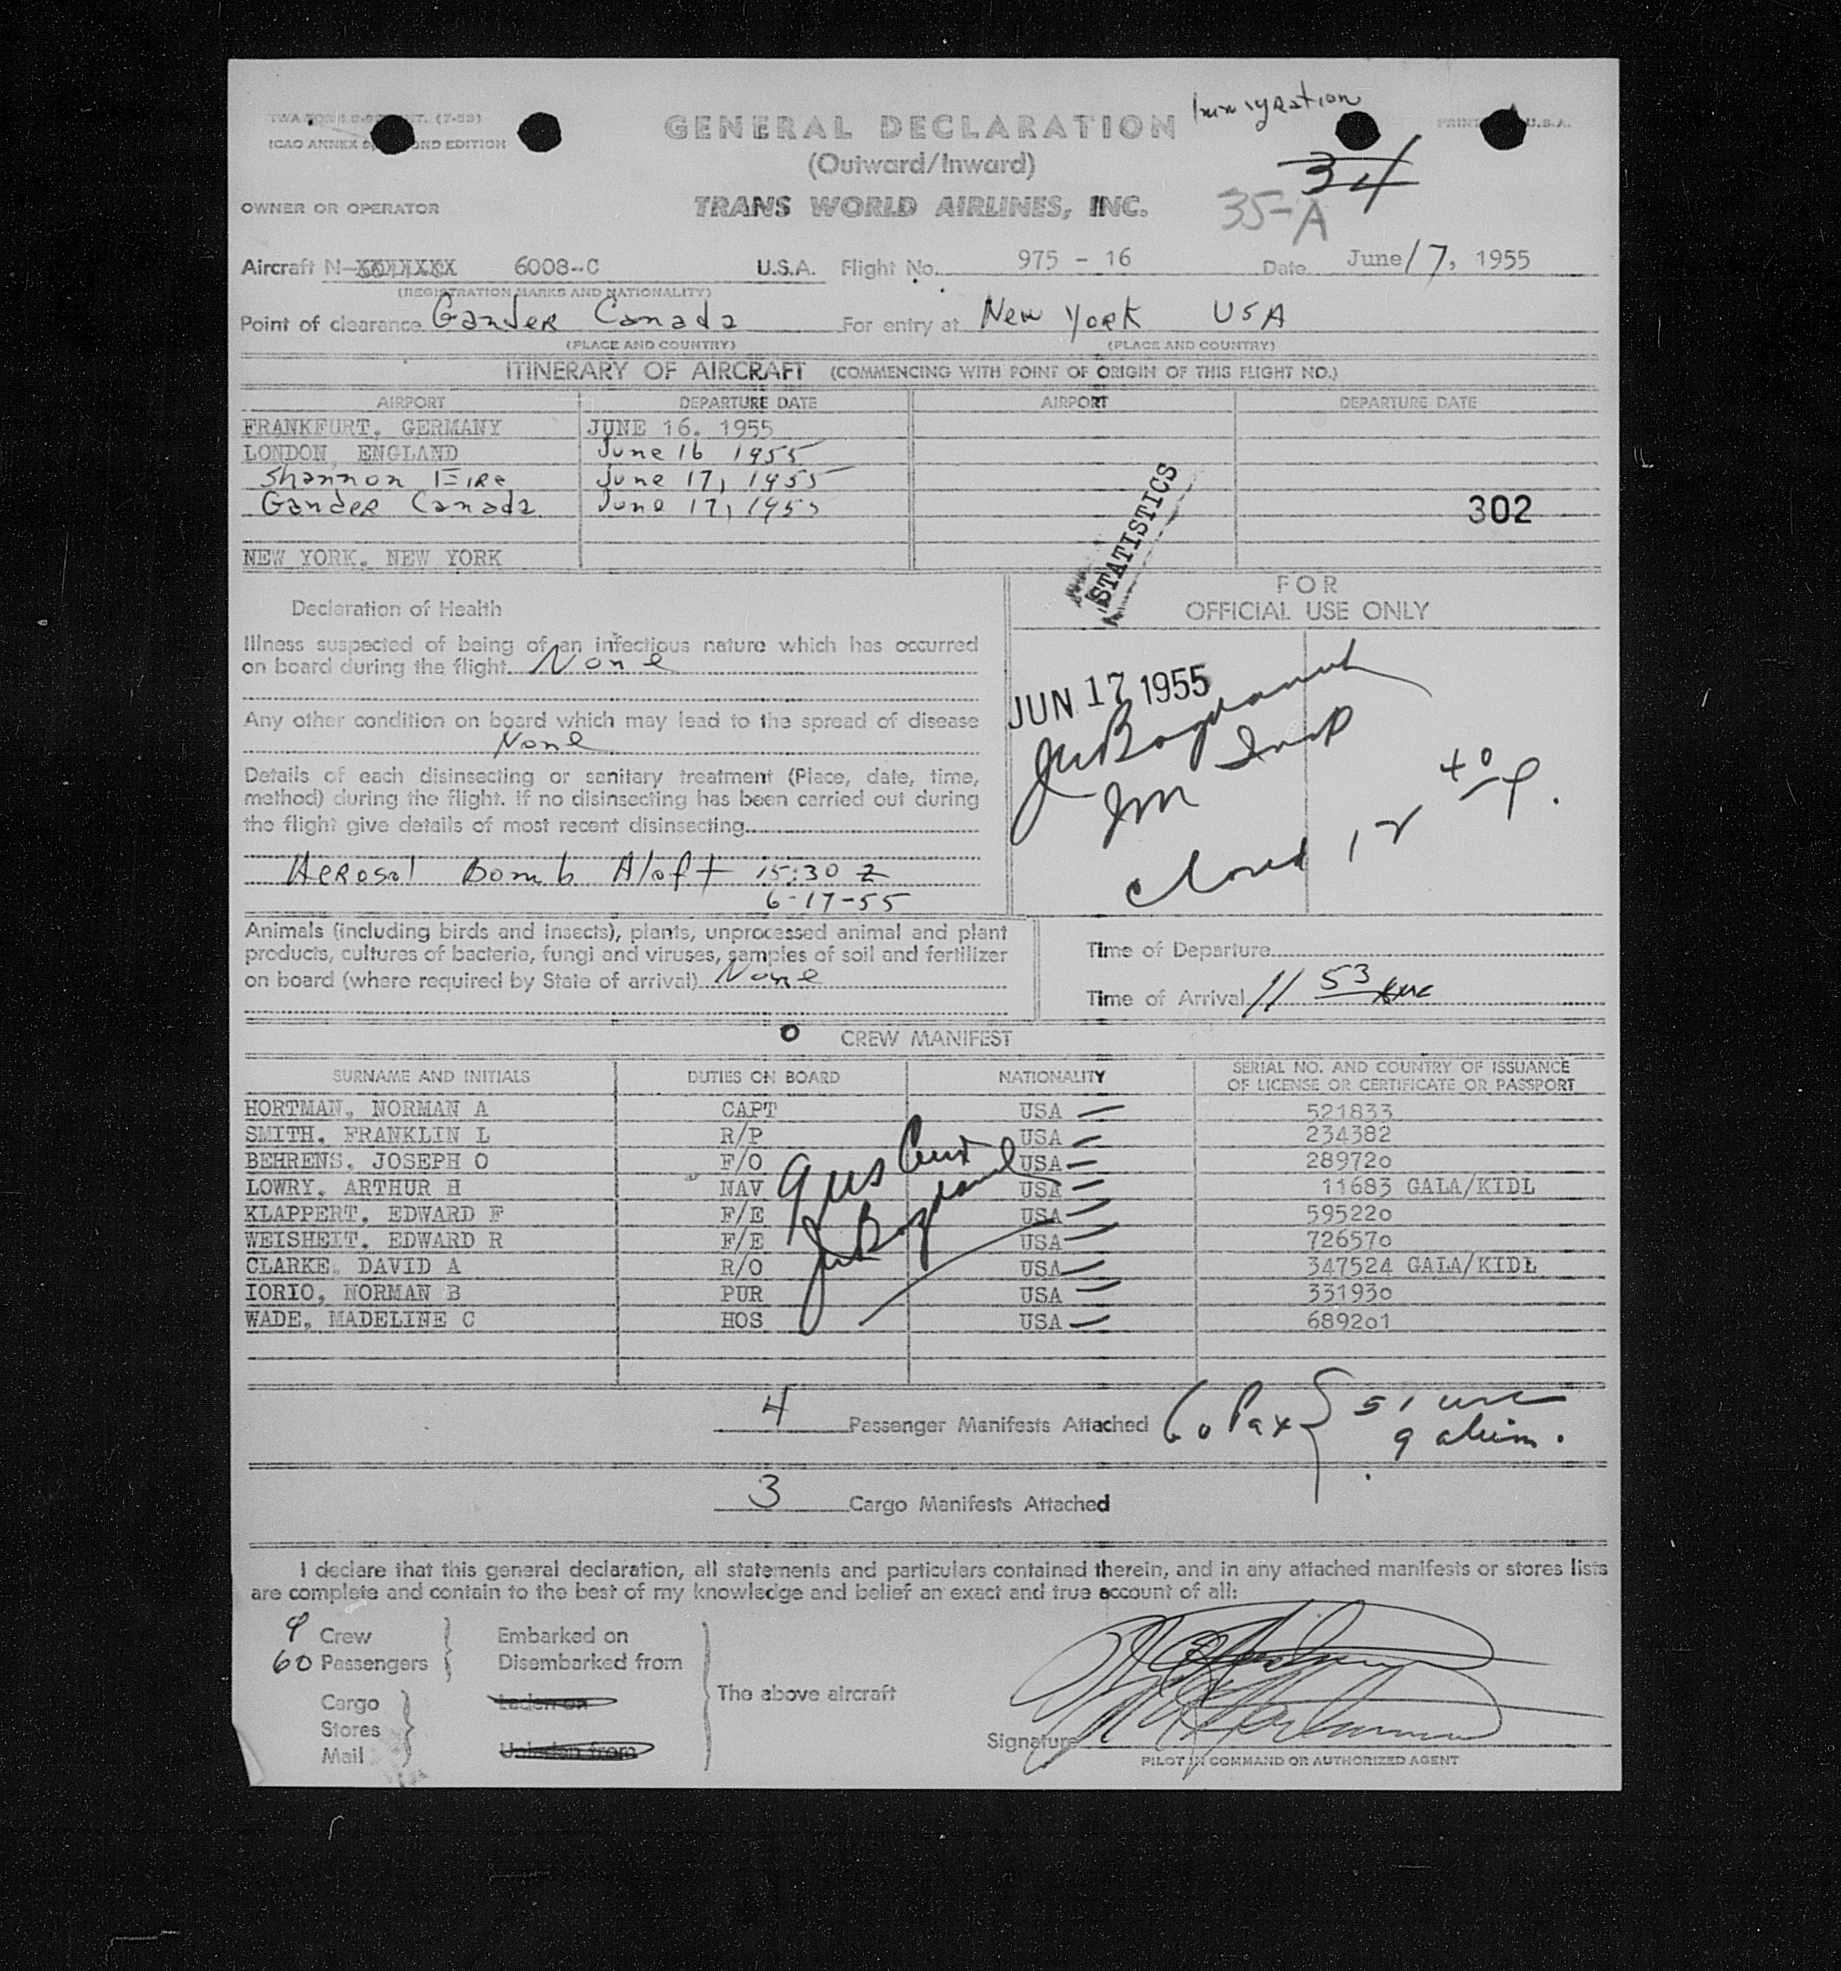 Immigration
GENERAL DECLARATION
(Outward/Inward)
34
35-A
OWNER OR OPERATOR
TRANS WORLD AIRLINES, INC.
Aircraft N- 6008-C U.S.A. Flight No. 975 - 16 Date June 17, 1955
(REGISTRATION MARKS AND NATIONALITY)
Point of clearance Gander Canada For entry at New York USA
(PLACE AND COUNTRY) (PLACE AND COUNTRY)
ITINERARY OF AIRCRAFT (COMMENCING WITH POINT OF ORIGIN OF THIS FLIGHT NO.)
AIRPORT DEPARTURE DATE AIRPORT DEPARTURE DATE
FRANKFURT, GERMANY JUNE 16, 1955
LONDON, ENGLAND June 16 1955
Shannon Eire June 17, 1955
Gander Canada June 17, 1955
302
NEW YORK, NEW YORK
STATISTICS
FOR
OFFICIAL USE ONLY
Declaration of Health
Illness suspected of being of an infectious nature which has occurred
on board during the flight None
JUN 17 1955
Any other condition on board which may lead to the spread of disease
None
Details of each disinsecting or sanitary treatment (Place, date, time,
method) during the flight. If no disinsecting has been carried out during
the flight give details of most recent disinsecting
Aerosol Bomb Aloft 15:30 Z
6-17-55
Closed 12 40 P.
Animals (including birds and insects), plants, unprocessed animal and plant
products, cultures of bacteria, fungi and viruses, samples of soil and fertilizer
on board (where required by State of arrival) None
Time of Departure
Time of Arrival 11 53
CREW MANIFEST
SURNAME AND INITIALS DUTIES ON BOARD NATIONALITY SERIAL NO. AND COUNTRY OF ISSUANCE
OF LICENSE OR CERTIFICATE OR PASSPORT
HORTMAN, NORMAN A CAPT USA 521833
SMITH, FRANKLIN L R/P USA 234382
BEHRENS, JOSEPH O F/O USA 289720
LOWRY, ARTHUR H NAV USA 11683 GALA/KIDL
KLAPPERT, EDWARD F F/E USA 595220
WEISHEIT, EDWARD R F/E USA 726570
CLARKE, DAVID A R/O USA 347524 GALA/KIDL
IORIO, NORMAN B PUR USA 331930
WADE, MADELINE C HOS USA 689201
4 Passenger Manifests Attached 60 Pax 51 usc
9 aliens.
3 Cargo Manifests Attached
I declare that this general declaration, all statements and particulars contained therein, and in any attached manifests or stores lists
are complete and contain to the best of my knowledge and belief an exact and true account of all:
9 Crew Embarked on
60 Passengers Disembarked from
The above aircraft
Cargo Laden on
Stores
Mail Unladen from
Signature
PILOT IN COMMAND OR AUTHORIZED AGENT